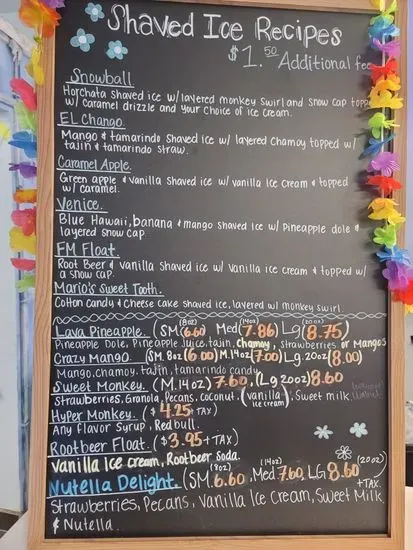 Shaved Ice Recipes
$1.50 Additional fee
Snowball
Horchata shaved ice w/ layered monkey swirl and snow cap topped
w/ caramel drizzle and your choice of ice cream.
EL Chango.
Mango & tamarindo shaved ice w/ layered Chamoy topped w/
tajin & tamarindo straw.
Caramel Apple.
Green apple & vanilla shaved ice w/ vanilla ice cream & topped
w/ caramel.
Venice.
Blue Hawaii, banana & mango shaved ice w/ Pineapple dole &
layered snow cap
FM Float.
Root Beer & vanilla shaved ice w/ vanilla ice cream & topped w/
a snow cap.
Mario's Sweet Tooth.
Cotton candy & Cheese cake shaved ice, layered w/ monkey swirl.
Lava Pineapple. (SM. (8oz) 6.60) Med (14oz) 7.86) Lg (20oz) 8.75)
Pineapple Dole, Pineapple Juice, tajin, chamoy, strawberries or Mangos
Crazy Mango. (SM. 8oz (6.00) M. 14oz (7.00) Lg. 20oz (8.00)
Mango, chamoy, tajin, tamarindo candy
Sweet Monkey. (M. 14oz) 7.60, (Lg 20oz) 8.60
Strawberries, Granola, Pecans, Coconut, (vanilla ice cream), Sweet milk
Hyper Monkey. ($4.25 + TAX)
Any flavor Syrup, Red bull.
Rootbeer Float. ($3.95 + TAX)
Vanilla Ice cream, Rootbeer Soda.
Nutella Delight. (SM. (8oz) 6.60, Med (14oz) 7.60, LG 8.60 (20oz)
+ TAX.
Strawberries, Pecans, Vanilla Ice Cream, Sweet Milk
& Nutella.